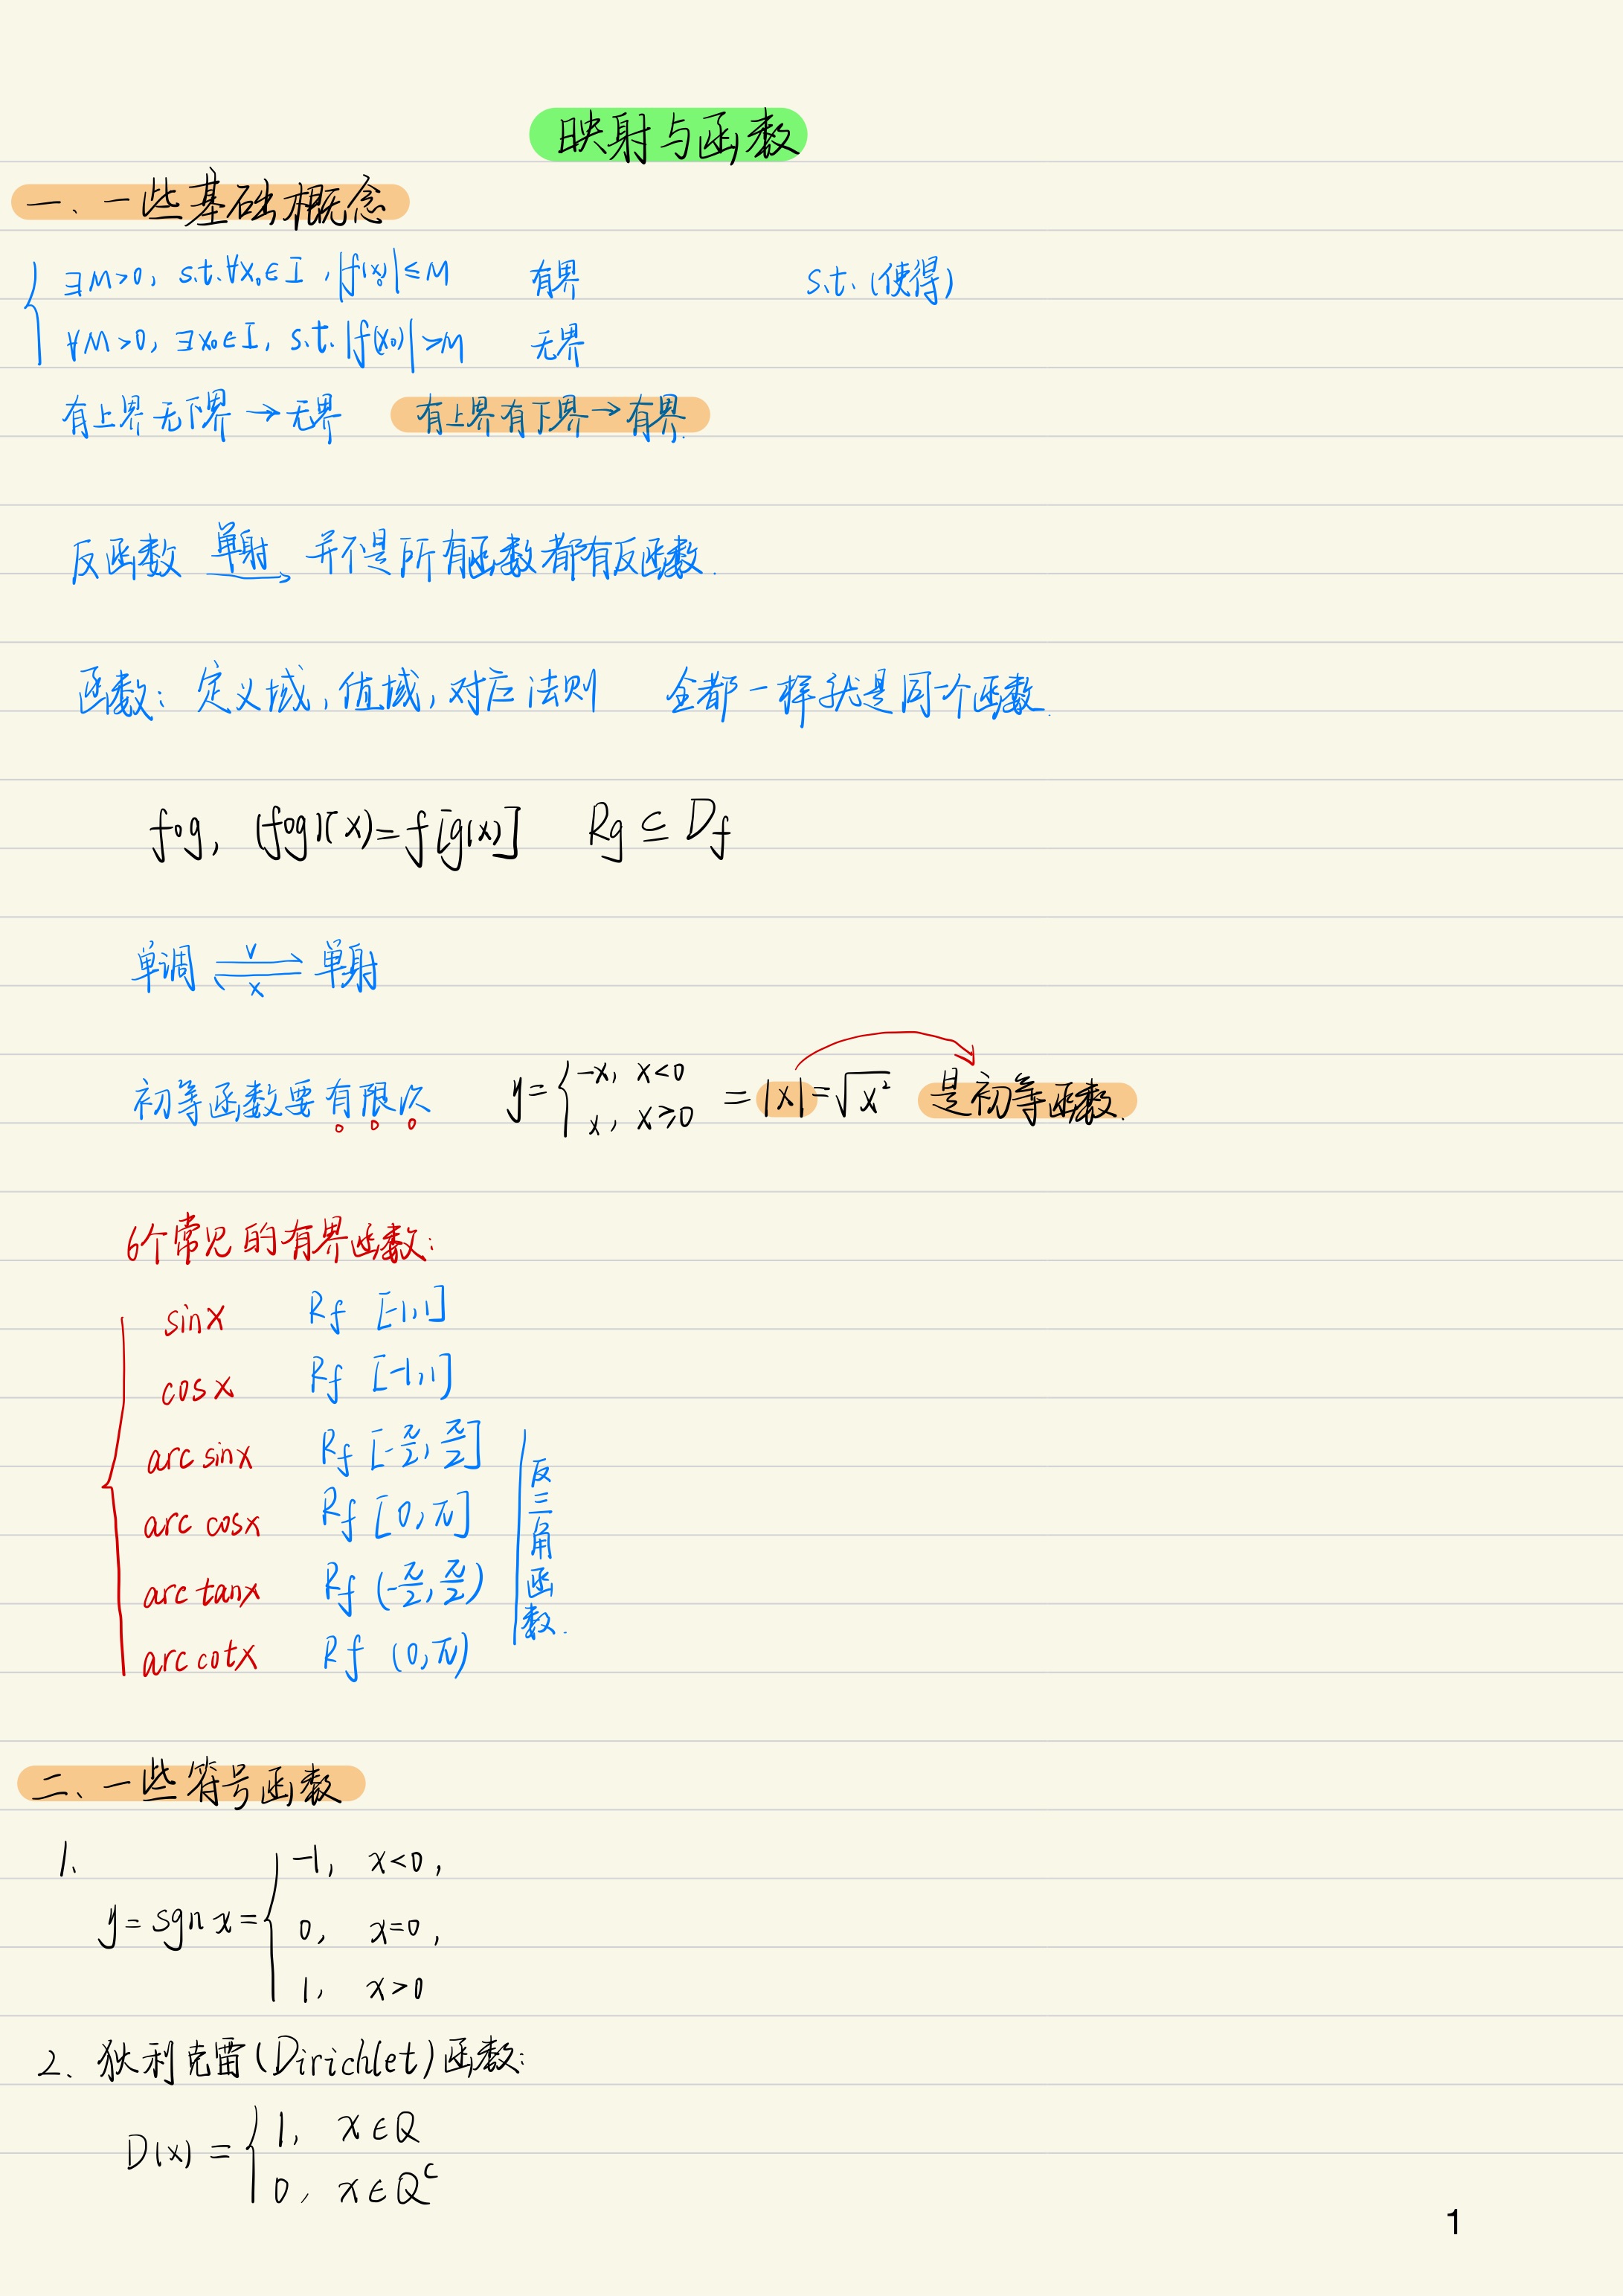 映射与函数
一、一些基础概念
∃M>0, s.t.∀x₀∈I, |f(x₀)|≤M 有界 s.t.(使得)
∀M>0, ∃x₀∈I, s.t.|f(x₀)|>M 无界
有上界无下界→无界 有上界有下界→有界.
反函数 单射→ 并不是所有函数都有反函数.
函数: 定义域, 值域, 对应法则 全都一样就是同一个函数.
f∘g, (f∘g)(x)=f[g(x)] Rg ⊆ Df
单调 ⇌ (√ ×) 单射
初等函数要有限次 y={-x, x<0 x, x≥0 =|x|=√x² 是初等函数.
6个常见的有界函数:
sinx Rf [-1,1]
cosx Rf [-1,1]
arc sinx Rf [-π/2, π/2]
arc cosx Rf [0,π]
arc tanx Rf (-π/2, π/2)
arc cotx Rf (0,π)
反三角函数.
二、一些符号函数
1、
y=sgn x={ -1, x<0,
0, x=0,
1, x>0
2、狄利克雷(Dirichlet)函数:
D(x)={ 1, x∈Q
0, x∈Qᶜ
1